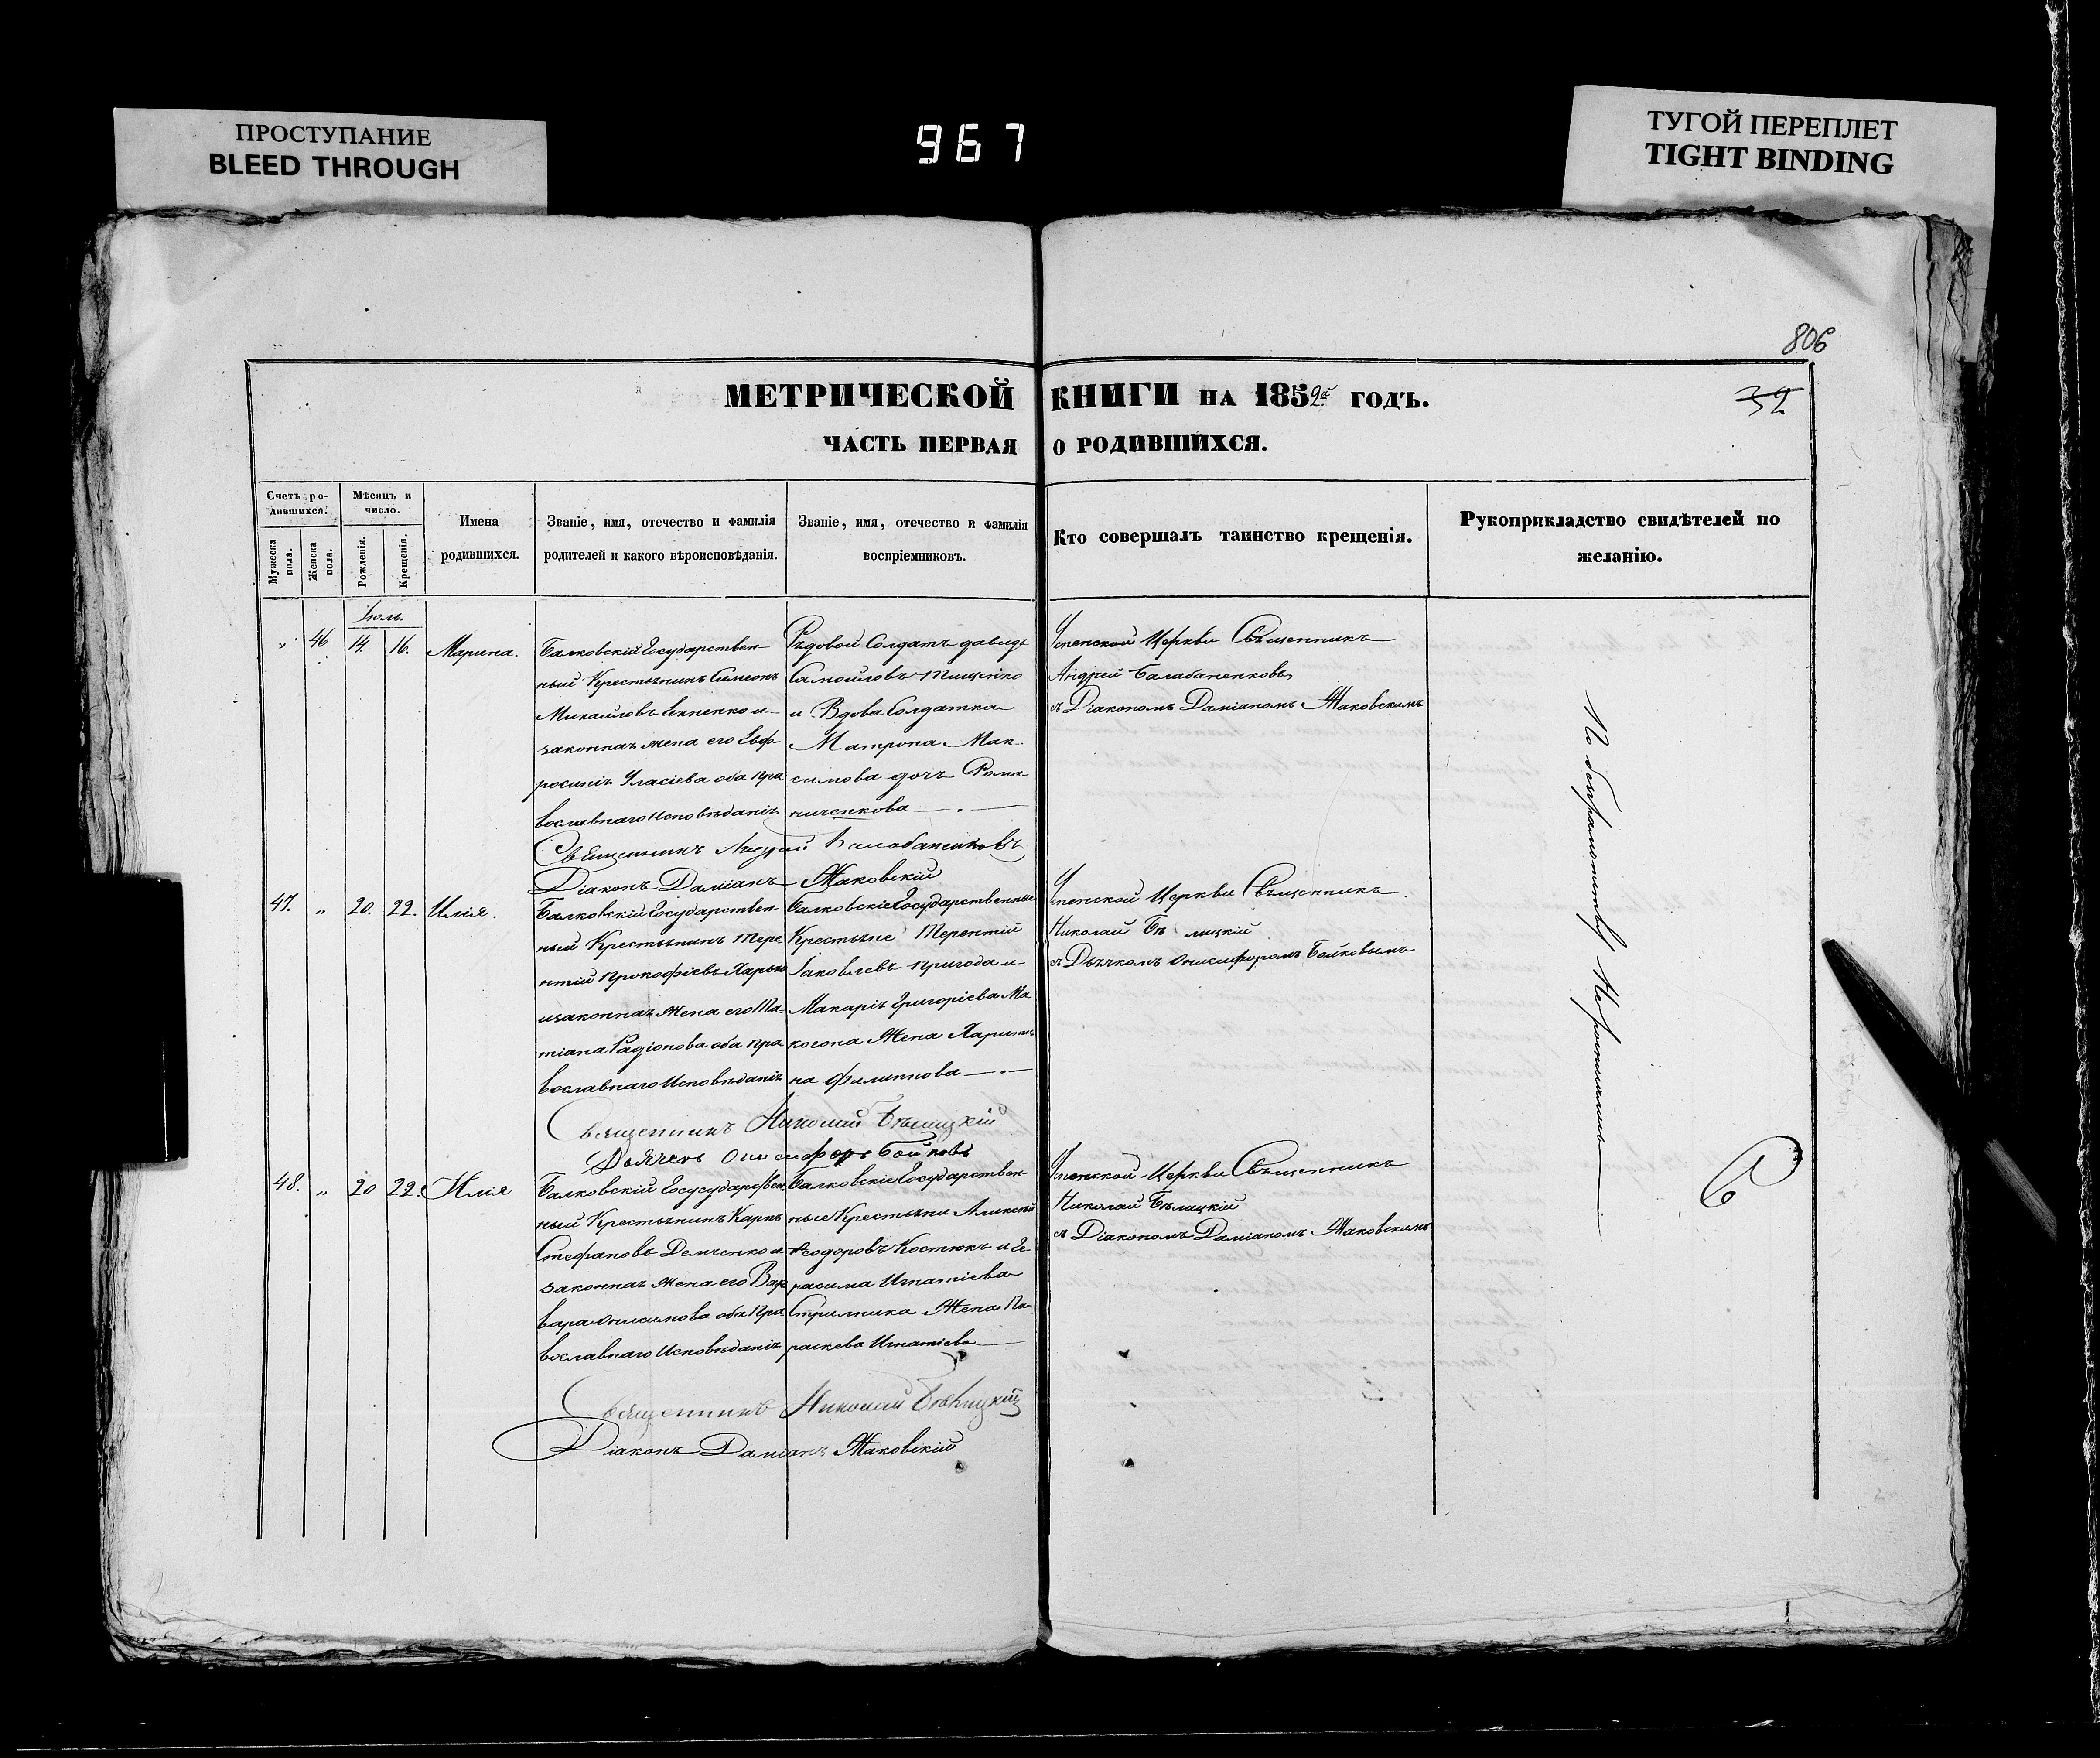 ПРОСТУПАНИЕ
BLEED THROUGH
967
ТУГОЙ ПЕРЕПЛЕТ
TIGHT BINDING
806
МЕТРИЧЕСКОЙ КНИГИ НА 1859й ГОДЪ.
32
ЧАСТЬ ПЕРВАЯ О РОДИВШИХСЯ.
Счетъ ро-
дившихся.
Мужеска
пола.
Женска
пола.
Мѣсяцъ и
число.
Рожденія.
Крещенія.
Имена
родившихся.
Званіе, имя, отечество и фамилія
родителей и какого вѣроисповѣданія.
Званіе, имя, отечество и фамилія
воспріемниковъ.
Кто совершалъ таинство крещенія.
Рукоприкладство свидѣтелей по
желанію.
Іюль.
„ 46 14. 16. Марина.
Балковскій Государствен-
ный Крестьянинъ Симеонъ
Михайловъ и
законная жена его Евф-
росинія Уласіева оба пра
вославнаго исповѣданія
Рядовой Солдатъ давидъ
Самойловъ Тищенко
и Вдова Солдатка
Матрона Мак-
симова дочь Рома-
ниченкова
Успенской Церкви Священникъ
Андрей Балабаненковъ
съ Діакономъ Даміаномъ Маковскимъ
Священникъ Андрей Балабаненковъ
Діаконъ Даміанъ Маковскій
47. „ 20. 22. Илія.
Балковскій Государствен-
ный Крестьянинъ Тере
нтій Прокофіевъ Харько
и законная Жена его Та-
тіана Радіонова оба пра
вославнаго Исповѣданія
Балковскіе Государственные
Крестьяне Терентій
Іаковлевъ Пригода и
Макарія Григоріева Ма
когона Жена Харити
на Филиппова
Успенской Церкви Священникъ
Николай Бѣлицкій
съ Дьячкомъ Онисифоромъ Бойковымъ
Священникъ Николай Бѣлицкій
Дьячекъ Онисифоръ Бойковъ
48. „ 20 22. Илія
Балковскій Госусударствен
ный Крестьянинъ Карпъ
Стефановъ Демченко и
законная жена его Вар
вара Онисимова оба Пра
вославнаго Исповѣданія
Балковскіе Государствен
ные Крестьяни Аликсѣй
Ѳеодоровъ Костюкъ и Ге-
расима Игнатіева
Стрилника Жена Па-
раскева Игнатіева
Успенской Церкви Священникъ
Николай Бѣлицкій
съ Діакономъ Даміаномъ Маковскимъ
Священникъ Николай Бѣлицкій
Діаконъ Даміанъ Маковскій
По безграмотству Неросписались